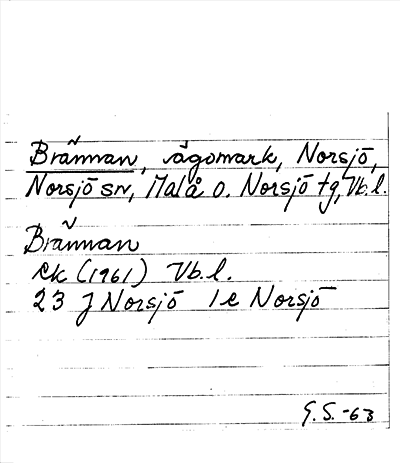 Brännan, ägomark, Norsjö,
Norsjö sn, Malå o. Norsjö tg, Vb.l.
Brännan
ek (1961) Vb.l.
23 J Norsjö 1e Norsjö
G.S.-63